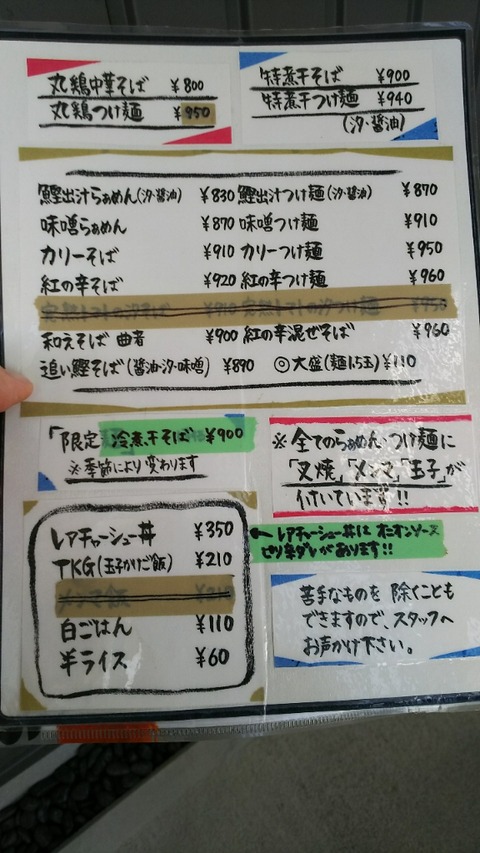 丸鶏中華そば ¥800
丸鶏つけ麺 ¥950
特煮干そば ¥900
特煮干つけ麺 ¥940
(汐・醤油)
鰹出汁らぁめん(汐・醤油) ¥830 鰹出汁つけ麺(汐・醤油) ¥870
味噌らぁめん ¥870 味噌つけ麺 ¥910
カリーそば ¥910 カリーつけ麺 ¥950
紅の辛そば ¥920 紅の辛つけ麺 ¥960
完熟トマトの汐そば ¥910 完熟トマトの汐つけ麺 ¥950
和えそば 曲者 ¥900 紅の辛混ぜそば ¥960
追い鰹そば(醤油・汐・味噌) ¥890 ◎大盛(麺1.5玉)¥110
「限定 冷煮干そば ¥900
※季節により変わります
※全てのらぁめん・つけ麺に
「叉焼」「メンマ」「玉子」が
付いています!!
レアチャーシュー丼 ¥350
TKG(玉子かけご飯) ¥210
メンマ飯 ¥210
白ごはん ¥110
半ライス ¥60
←レアチャーシュー丼に オニオンソース
ピリ辛ダレがあります!!
苦手なものを 除くことも
できますので、スタッフへ
お声かけ下さい。